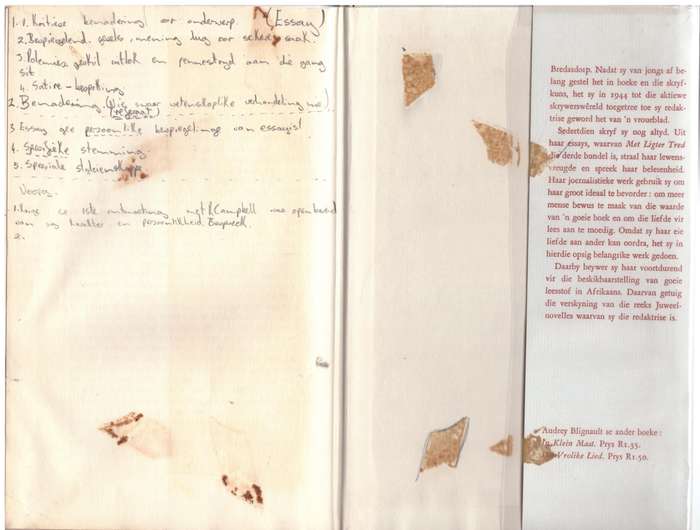 1. 1. Kritiese benadering oor onderwerp. (Essay)
2. Bespiegelend. mening lug oor sekere saak.
3. Polemies. gesprek ontlok en pennestryd aan die gang
sit
4. Satire - bespotting
2. Benadering. (Nie suiwer wetenskaplike verhandeling nie)
3 Essay gee persoonlike bespiegeling van essayis!
4. Spesifieke stemming
5. Spesiale
Vrae.
1. Hoe se 1ste ontmoeting met R Campbell
van sy karakter en persoonlikheid. Bespreek.
2.
Bredasdorp. Nadat sy van jongs af be-
lang gestel het in boeke en die skryf-
kuns, het sy in 1944 tot die aktiewe
skrywerswêreld toegetree toe sy redak-
trise geword het van 'n vroueblad.
Sedertdien skryf sy nog altyd. Uit
haar essays, waarvan Met Ligter Tred
die derde bundel is, straal haar lewens-
vreugde en spreek haar belesenheid.
Haar joernalistieke werk gebruik sy om
haar groot ideaal te bevorder: om meer
mense bewus te maak van die waarde
van 'n goeie boek en om die liefde vir
lees aan te moedig. Omdat sy haar eie
liefde aan ander kan oordra, het sy in
hierdie opsig belangrike werk gedoen.
Daarby beywer sy haar voortdurend
vir die beskikbaarstelling van goeie
leesstof in Afrikaans. Daarvan getuig
die verskyning van die reeks Juweel-
novelles waarvan sy die redaktrise is.
Audrey Blignault se ander boeke:
In Klein Maat. Prys R1.35.
Vrolike Lied. Prys R1.50.